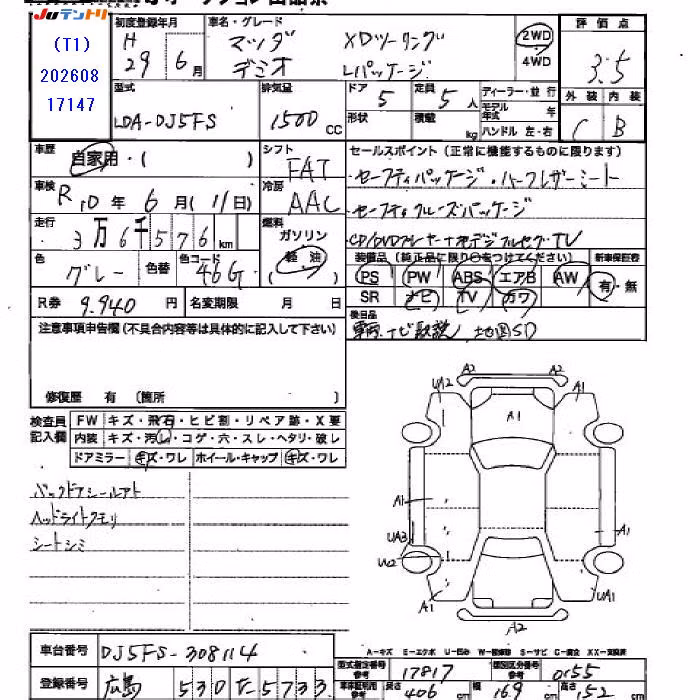 Juテントリ
(T1)
202608
17147
初度登録年月 車名・グレード 評価点
H 29 6月 マツダ デミオ XDツーリング Lパッケージ 2WD 4WD 3.5
型式 排気量 ドア 定員 ディーラー・並行 外装 内装
LDA-DJ5FS 1500 CC 5 5人 モデル年式 年
形状 積載 kg ハンドル 左・右 C B
車歴 自家用・( ) シフト FAT セールスポイント (正常に機能するものに限ります)
車検 R10年6月(11日) 冷房 AAC セーフティパッケージ・ハーフレザーシート
セーフティクルーズパッケージ
走行 3万6千576km 燃料 ガソリン 軽油 CD/DVDプレーヤー+地デジフルセグTV
装備品 (純正品に限り○をつけてください) 新車保証書
色 グレー 色替 色コード 46G PS PW ABS エアB AW 有・無
R券 9.940円 名変期限 月 日 SR ナビ TV カワ
注意事項申告欄 (不具合内容等は具体的に記入して下さい) 後日品
車両、ナビ取説、地図SD
修復歴 有 (箇所 )
検査員記入欄 FW キズ・飛石・ヒビ割・リペア跡・X要
内装 キズ・汚れ・コゲ・穴・スレ・ヘタリ・破レ
ドアミラー キズ・ワレ ホイール・キャップ キズ・ワレ
バックドアシールアト
ヘッドライトクモリ
シートシミ
A2 A2
UA2 A1 A1
A1 A1
UA3
U2
A1 UA1
A2
車台番号 DJ5FS-308114
A-キズ E-エクボ U-凹み W-補修跡 S-サビ C-腐食 XX-交換済
型式指定番号 参考 17817 類別区分番号 参考 0155
登録番号 広島 530 た 5733 車庫証明用 参考 長さ 406 cm 幅 169 cm 高さ 152 cm